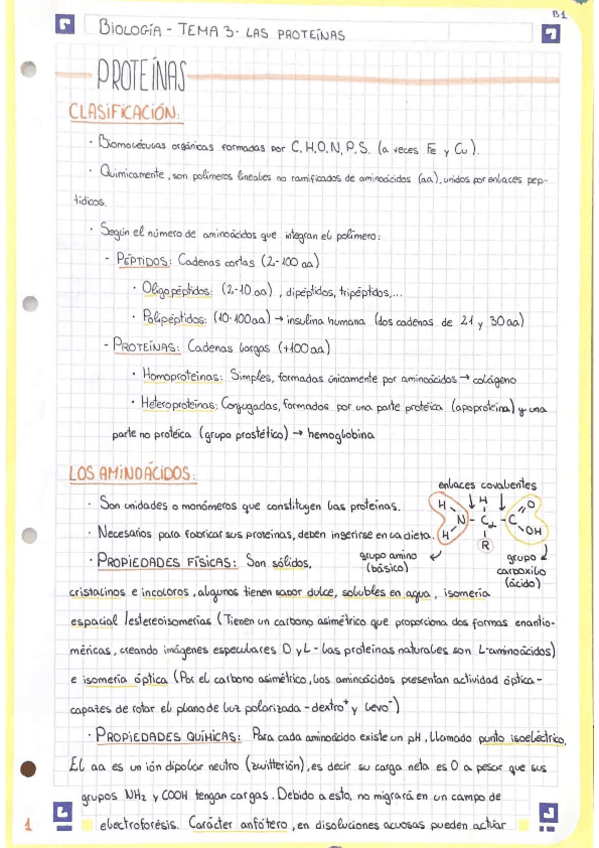 B1
BIOLOGÍA - TEMA 3 - LAS PROTEÍNAS
PROTEÍNAS
CLASIFICACIÓN:
· Biomoléculas orgánicas formadas por C, H, O, N, P, S. (a veces Fe y Cu).
· Químicamente, son polímeros lineales no ramificados de aminoácidos (aa), unidos por enlaces pep-
tídicos.
· Según el número de aminoácidos que integran el polímero:
- PÉPTIDOS: Cadenas cortas (2-100 aa)
· Oligopéptidos: (2-10 aa), dipéptidos, tripéptidos,...
· Polipéptidos: (10-100aa) → insulina humana (dos cadenas de 21 y 30 aa)
- PROTEÍNAS: Cadenas largas (+100 aa)
· Homoproteínas: Simples, formadas únicamente por aminoácidos → colágeno
· Heteroproteínas: Conjugadas, formados por una parte protéica (apoproteína) y una
parte no protéica (grupo prostético) → hemoglobina
LOS AMINOÁCIDOS:
enlaces covalentes
· Son unidades o monómeros que constituyen las proteínas.
H H O
N - Cα - C
H R OH
· Necesarios para fabricar sus proteínas, deben ingerirse en la dieta.
· PROPIEDADES FÍSICAS: Son sólidos,
grupo amino
(básico)
grupo
carboxilo
(ácido)
cristalinos e incoloros, algunos tienen sabor dulce, solubles en agua, isomería
espacial /estereoisomerías (Tienen un carbono asimétrico que proporciona dos formas enantio-
méricas, creando imágenes especulares D y L - Las proteínas naturales son L-aminoácidos)
e isomería óptica (Por el carbono asimétrico, los aminoácidos presentan actividad óptica-
capazes de rotar el plano de luz polarizada - dextro⁺ y levo⁻)
· PROPIEDADES QUÍMICAS: Para cada aminoácido existe un pH, llamado punto isoeléctrico.
El aa es un ión dipolar neutro (zwitterión), es decir su carga neta es 0 a pesar que sus
grupos NH₂ y COOH tengan cargas. Debido a esto, no migrará en un campo de
electroforésis. Carácter anfótero, en disoluciones acuosas pueden actuar
1